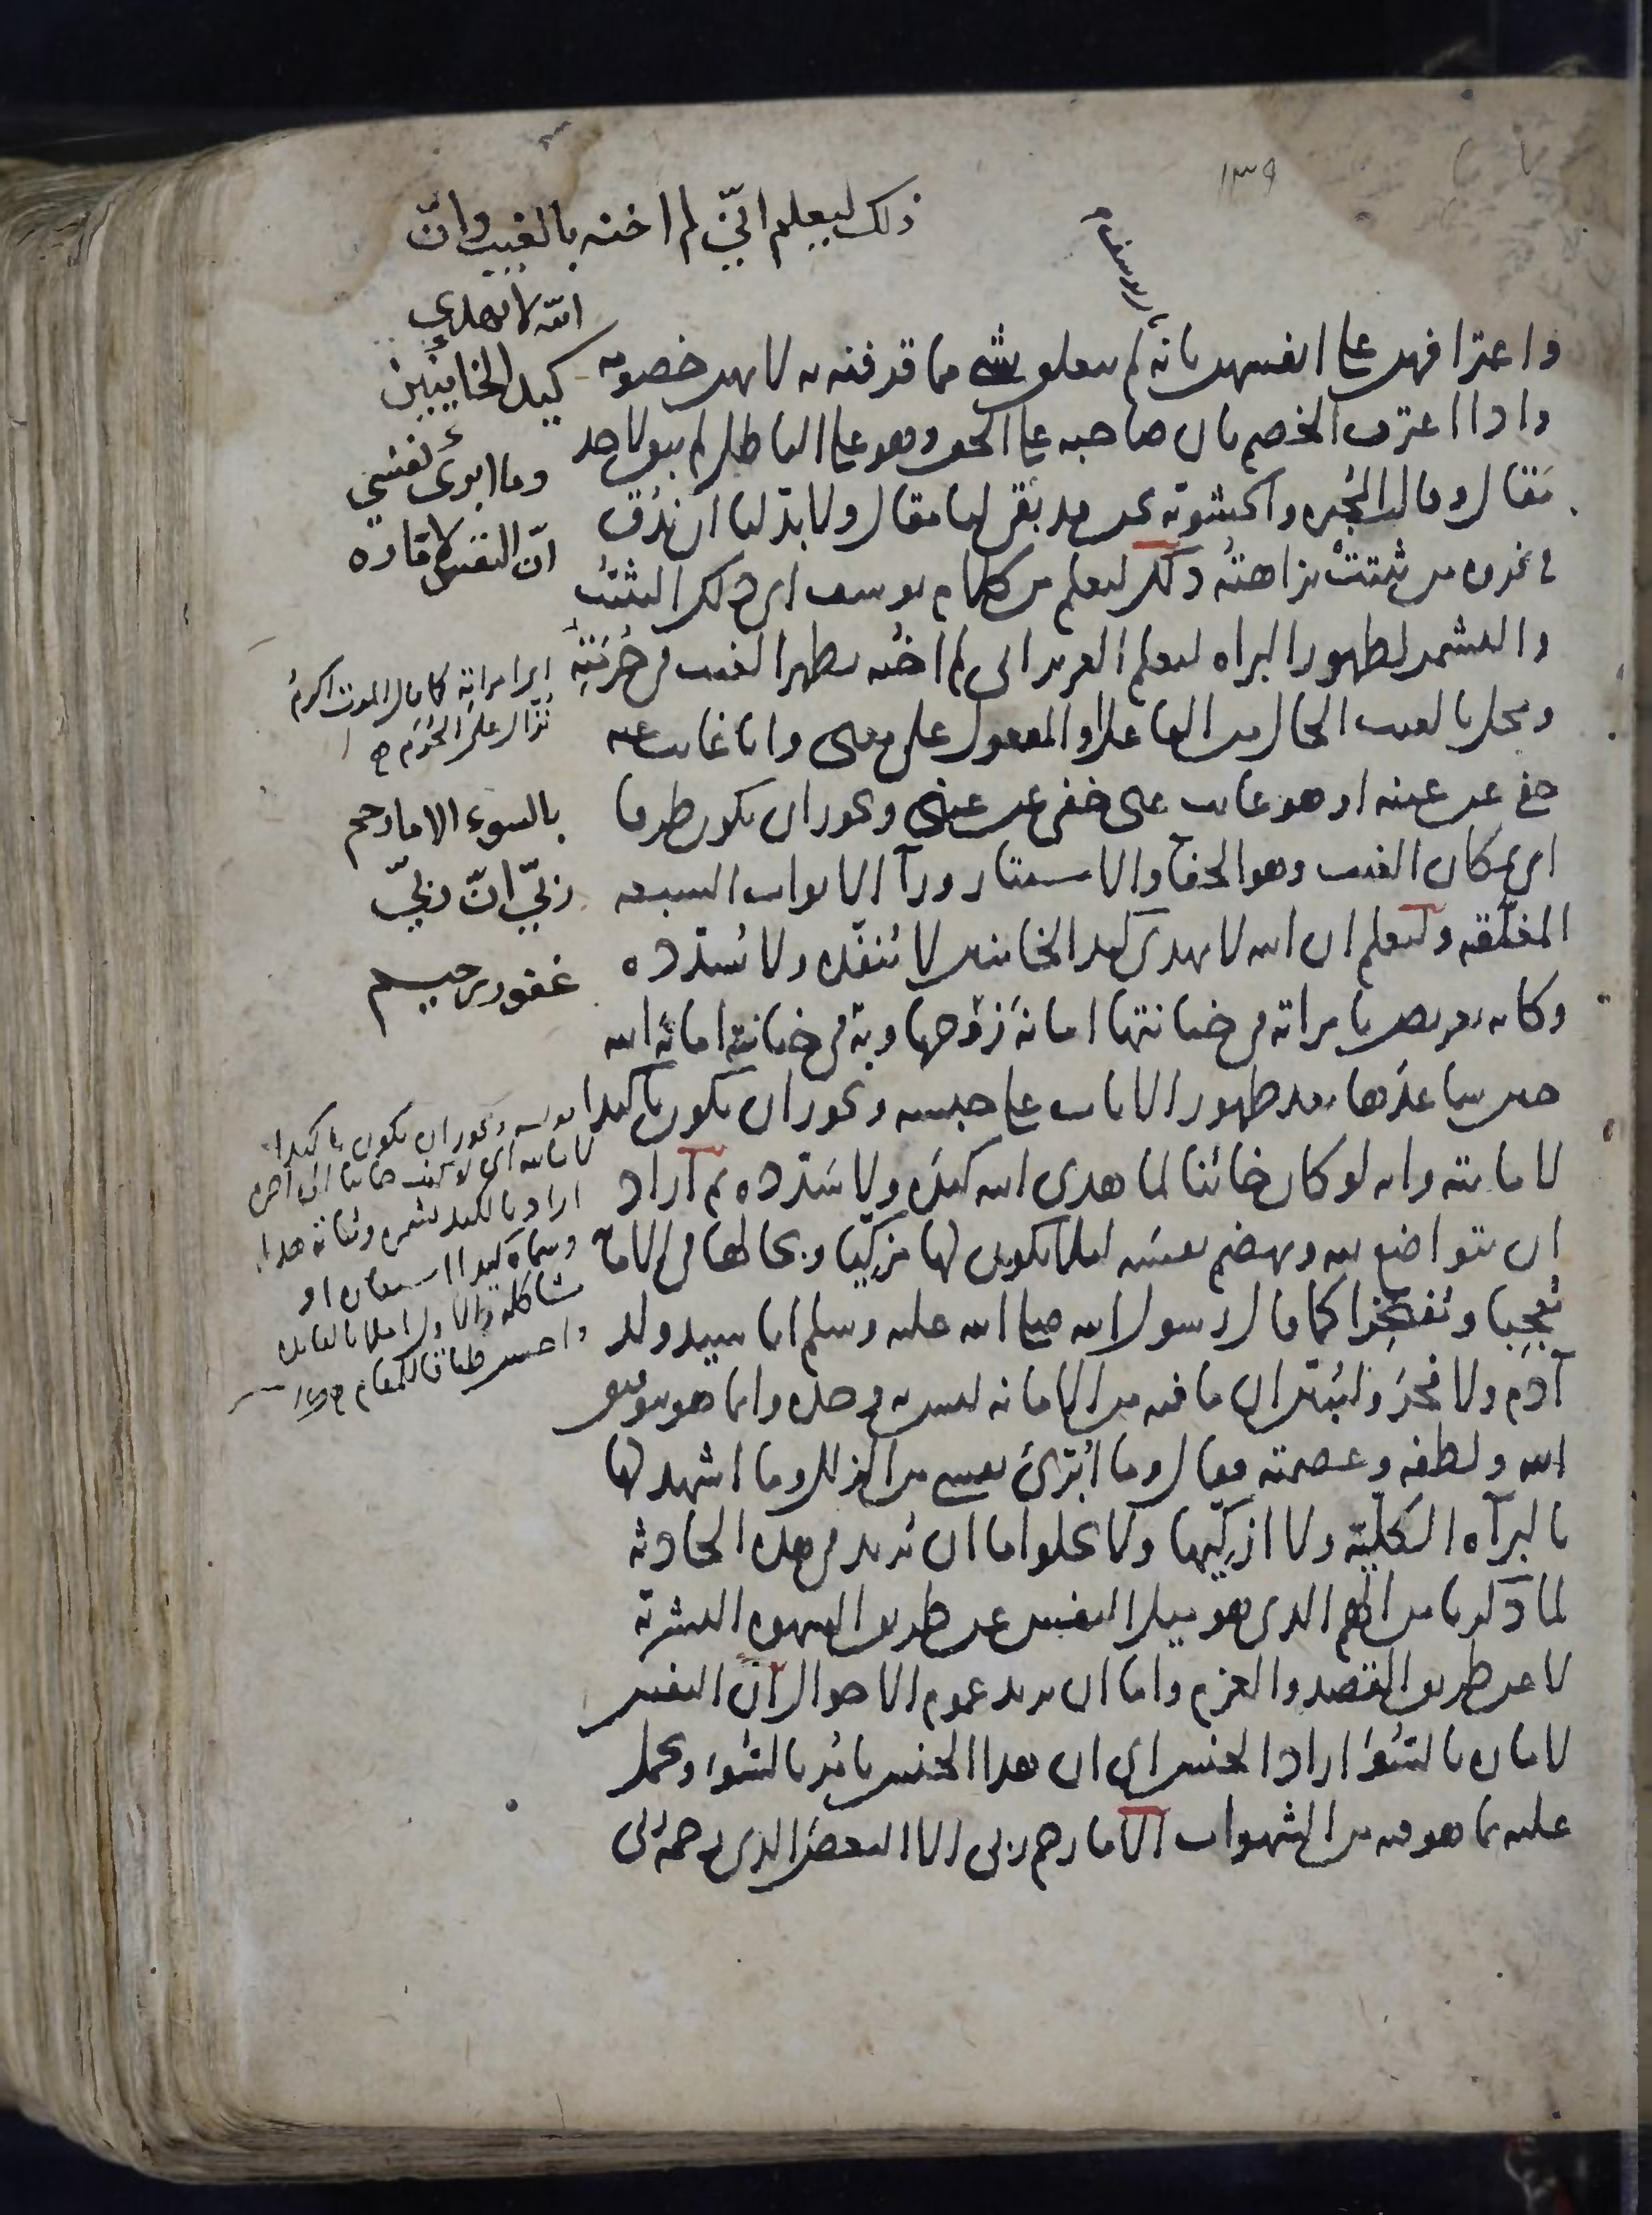 ١٣٩
ذلك ليعلم انّي لم اخنه بالغيب وانّ
الله لا يهدي
كيد الخاينين
وما ابرئ نفسي
انّ النفس لامّارة
بالسوء الا ما رحم
ربّي انّ ربّي
غفور رحيم
واعترافهن على انفسهن بانه لم يتعلق بشي مما قرفنه به لانهن خصومه
واذا اعترف الخصم بان صاحبه على الحق وهو على الباطل لم يبق لاحد
مقال وقالت المجبرة والحشوية نحن قد بقي لنا مقال ولا بد لنا ان ندق
في فروة من ثبتت نزاهته ذلك ليعلم من كلام يوسف اي ذلك التثبت
والتشمر لظهور البراه ليعلم العزيز اني لم اخنه بظهر الغيب في حرمته
ومحل بالغيب الحال من الفاعل او المفعول على معنى وانا غايب عنه
خفي عن عينه او هو غايب عني خفي عن عيني ويجوز ان يكون ظرفا
اي بمكان الغيب وهو الخفآ والاستتار ورآ الابواب السبعه
المغلّقه وليعلم ان الله لا يهدي كيد الخاينين لا ينفّذه ولا يسدّده
وكانه تعريض بامراته في خيانتها امانة زوجها وبه في خيانته امانة الله
حين ساعدها بعد ظهور الايات على حبسه ويجوز ان يكون تاكيدا
لامانته وانه لو كان خائنا لما هدى الله كيده ولا سدّده ثم اراد
ان يتواضع لله ويهضم نفسه لئلا يكون لها مزكيا وبحالها في الامانة
معجبا ومفتخرا كما قال رسول الله صلى الله عليه وسلم انا سيد ولد
آدم ولا فخر وليبيّن ان ما فيه من الامانه ليس به وحده وانما هو بتوفيق
الله ولطفه وعصمته فقال وما ابرئ نفسي من الزلل وما اشهد لها
بالبرآه الكليّة ولا ازكيها ولا يخلوا ما ان يريد في هذه الحادثه
لما ذكرنا من الهم الذي هو ميل النفس عن طريق الشهوه البشرية
لا عن طريق القصد والعزم واما ان يريد عموم الاحوال ان النفس
لامارة بالسّوء اراد الجنس اي ان هذا الجنس يامر بالسّوء ويحمل
عليه بما هو فيه من الشهوات الا ما رحم ربي الا البعض الذي رحمه ربي
اي امراته كما قال الموت اكرم
نزّال على الحُرَم
ويجوز ان يكون تاكيدا
اراد بالكيد تشمره وثباته
وسماه كيدا استعارة او
مشاكلة والاول املا بالفايدة
واحسن طباقا للمقام